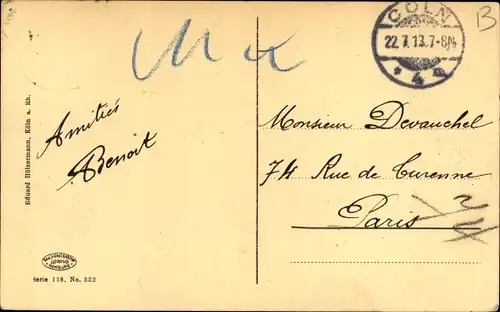 CÖLN
22.7.13.7-8N
* 4 q
B
Amitiés
Benoit
Monsieur Devauchel
74 Rue de Turenne
Paris
Eduard Hölzermann, Köln a. Rh.
Serie 118, No. 352